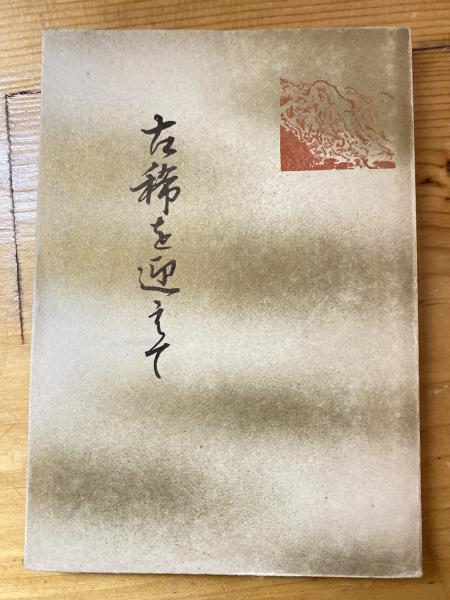 古稀を迎えて